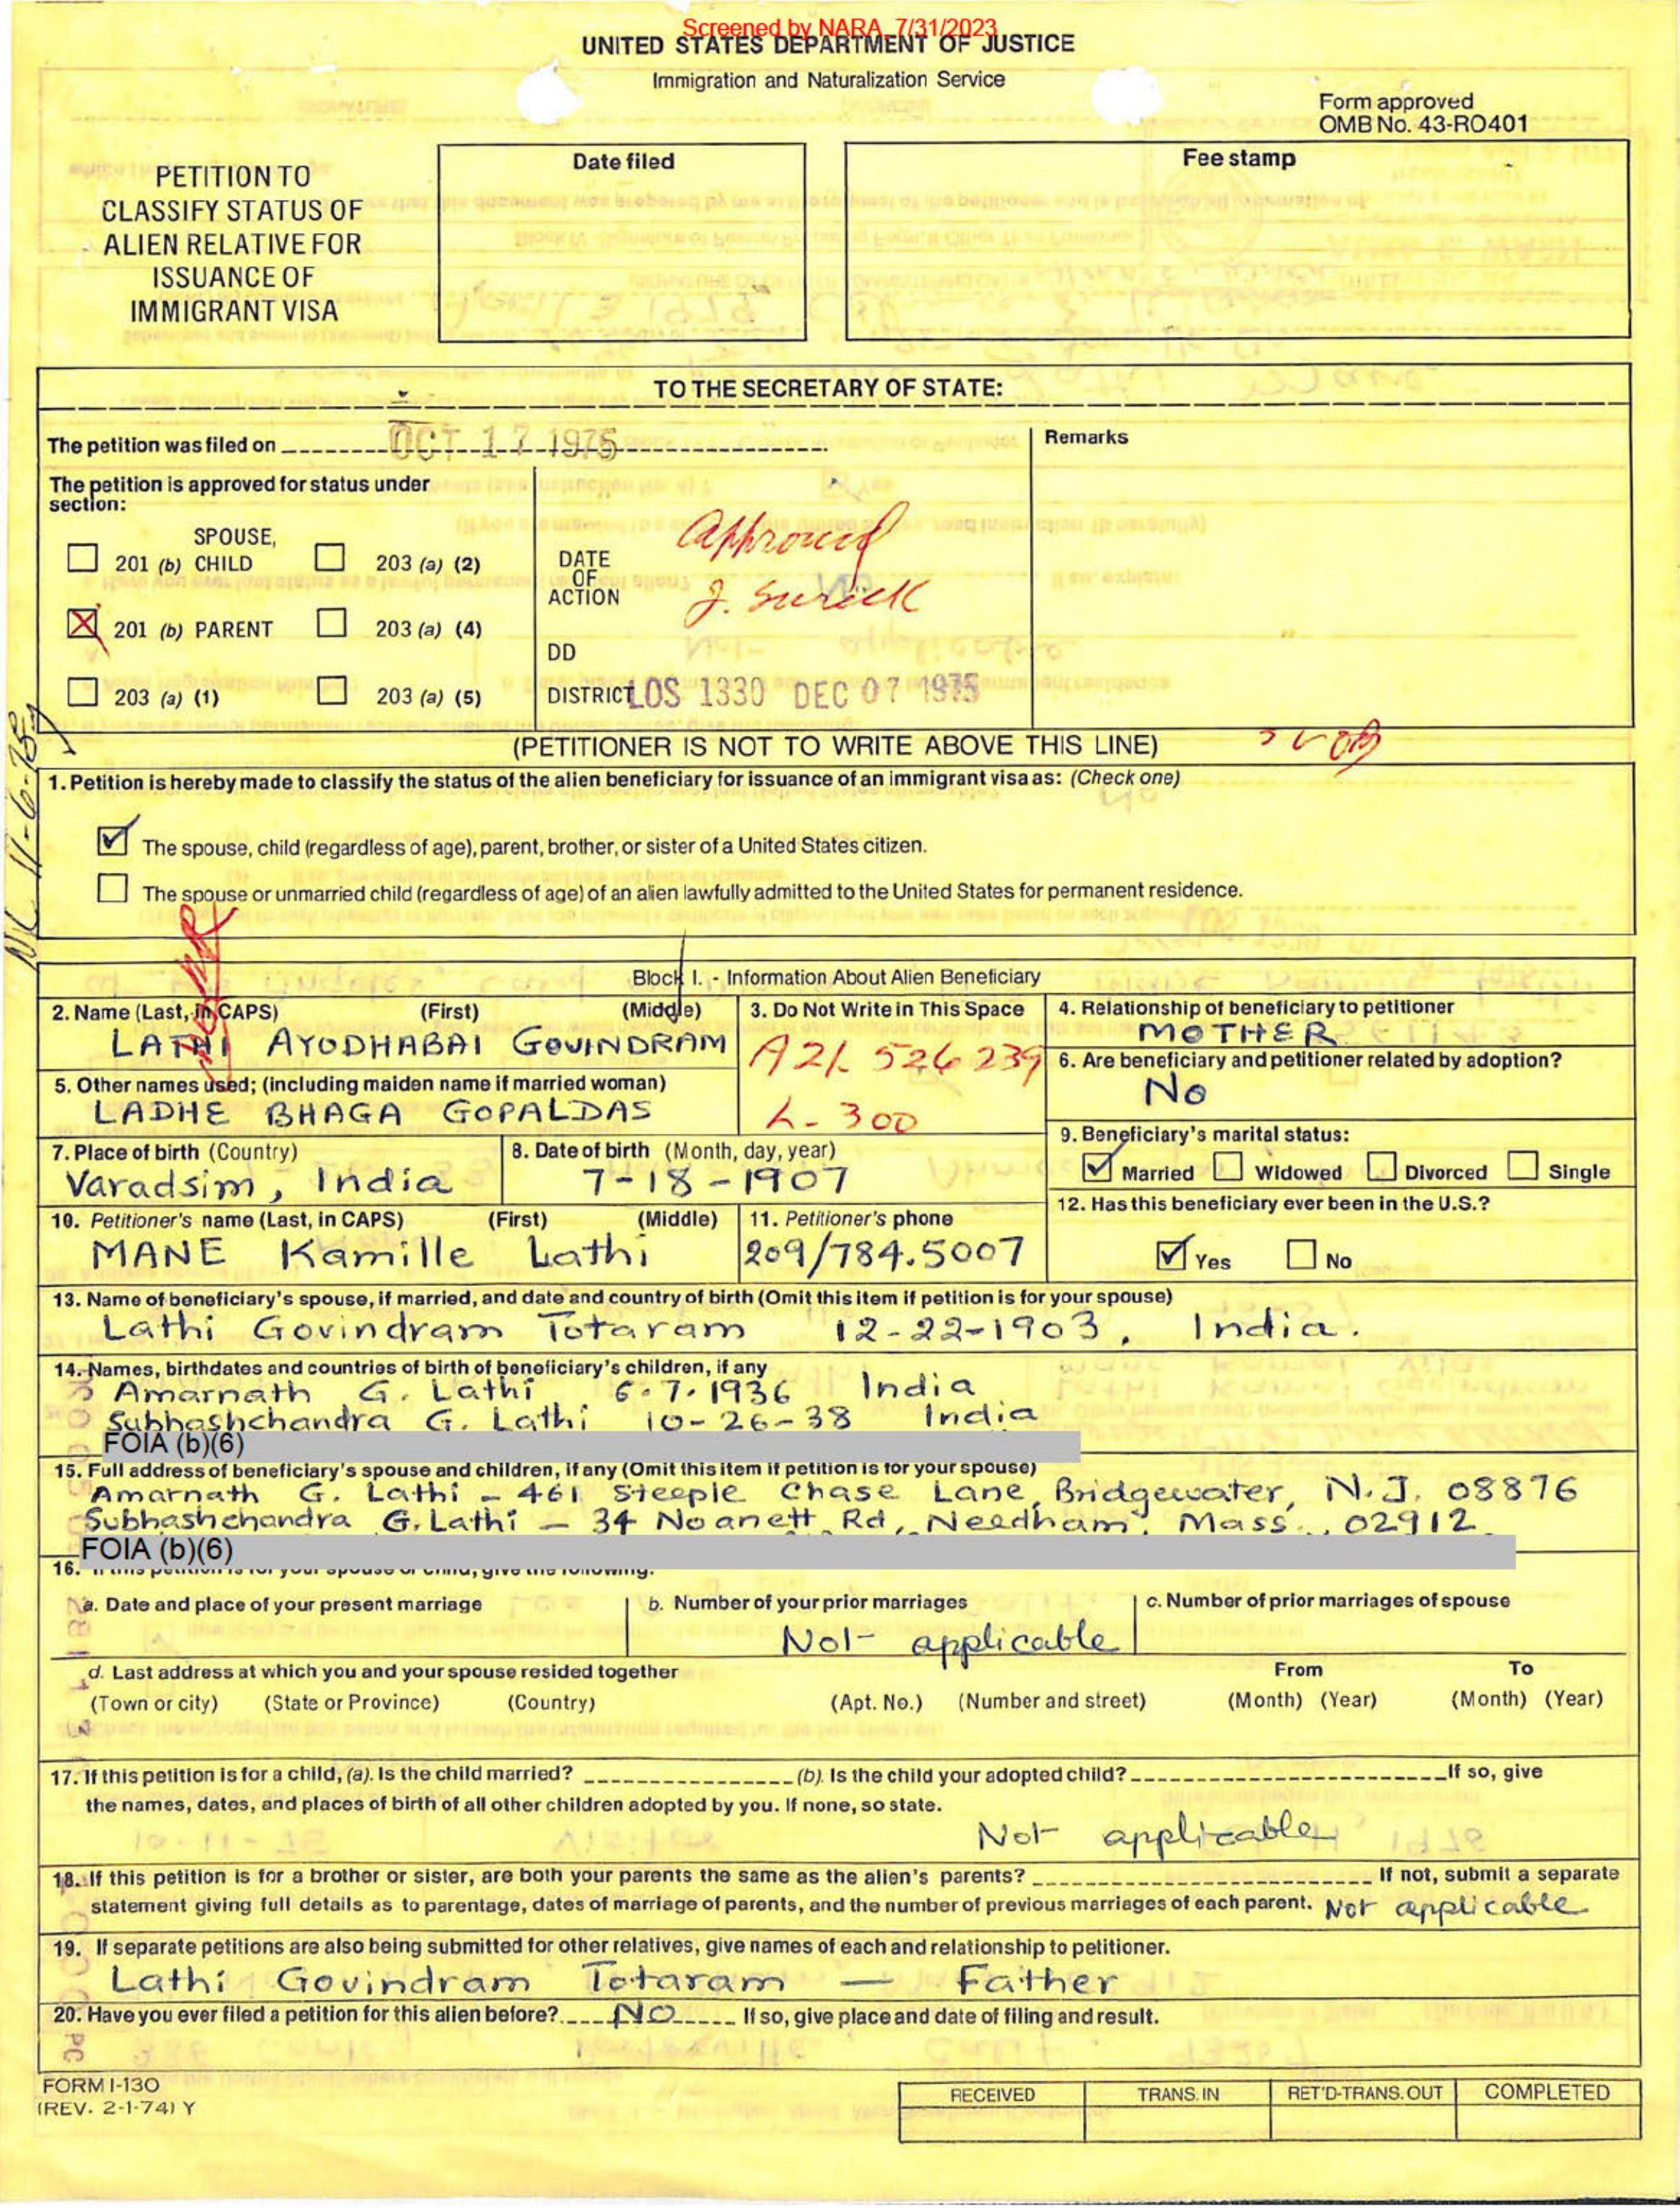 Screened by NARA, 7/31/2023
UNITED STATES DEPARTMENT OF JUSTICE
Immigration and Naturalization Service
Form approved
OMB No. 43-RO401
PETITION TO
CLASSIFY STATUS OF
ALIEN RELATIVE FOR
ISSUANCE OF
IMMIGRANT VISA
Date filed
Fee stamp
TO THE SECRETARY OF STATE:
The petition was filed on OCT 17 1975
Remarks
The petition is approved for status under
section:
SPOUSE,
201 (b) CHILD
203 (a) (2)
201 (b) PARENT
203 (a) (4)
203 (a) (1)
203 (a) (5)
DATE
OF
ACTION
Approved
J. Surick
DD
DISTRICT LOS 1330 DEC 07 1975
(PETITIONER IS NOT TO WRITE ABOVE THIS LINE)
1. Petition is hereby made to classify the status of the alien beneficiary for issuance of an immigrant visa as: (Check one)
The spouse, child (regardless of age), parent, brother, or sister of a United States citizen.
The spouse or unmarried child (regardless of age) of an alien lawfully admitted to the United States for permanent residence.
Block I. - Information About Alien Beneficiary
2. Name (Last, in CAPS) (First) (Middle)
LATHI AYODHABAI GOVINDRAM
3. Do Not Write in This Space
A21 526 239
L-300
4. Relationship of beneficiary to petitioner
MOTHER
5. Other names used; (including maiden name if married woman)
LADHE BHAGA GOPALDAS
6. Are beneficiary and petitioner related by adoption?
No
7. Place of birth (Country)
Varadsim, India
8. Date of birth (Month, day, year)
7-18-1907
9. Beneficiary's marital status:
Married Widowed Divorced Single
10. Petitioner's name (Last, in CAPS) (First) (Middle)
MANE Kamille Lathi
11. Petitioner's phone
209/784.5007
12. Has this beneficiary ever been in the U.S.?
Yes No
13. Name of beneficiary's spouse, if married, and date and country of birth (Omit this item if petition is for your spouse)
Lathi Govindram Totaram 12-22-1903, India.
14. Names, birthdates and countries of birth of beneficiary's children, if any
Amarnath G. Lathi 6.7.1936 India
Subhashchandra G. Lathi 10-26-38 India
FOIA (b)(6)
15. Full address of beneficiary's spouse and children, if any (Omit this item if petition is for your spouse)
Amarnath G. Lathi - 461 Steeple Chase Lane, Bridgewater, N.J. 08876
Subhashchandra G. Lathi - 34 Noanett Rd, Needham, Mass., 02912
FOIA (b)(6)
16. If this petition is for your spouse or child, give the following:
a. Date and place of your present marriage
b. Number of your prior marriages
c. Number of prior marriages of spouse
Not applicable
d. Last address at which you and your spouse resided together
From To
(Town or city) (State or Province) (Country) (Apt. No.) (Number and street) (Month) (Year) (Month) (Year)
17. If this petition is for a child, (a). Is the child married? (b). Is the child your adopted child? If so, give
the names, dates, and places of birth of all other children adopted by you. If none, so state.
Not applicable
18. If this petition is for a brother or sister, are both your parents the same as the alien's parents? If not, submit a separate
statement giving full details as to parentage, dates of marriage of parents, and the number of previous marriages of each parent. Not applicable
19. If separate petitions are also being submitted for other relatives, give names of each and relationship to petitioner.
Lathi Govindram Totaram — Father
20. Have you ever filed a petition for this alien before? NO If so, give place and date of filing and result.
FORM I-130
(REV. 2-1-74) Y
RECEIVED TRANS. IN RET'D-TRANS. OUT COMPLETED